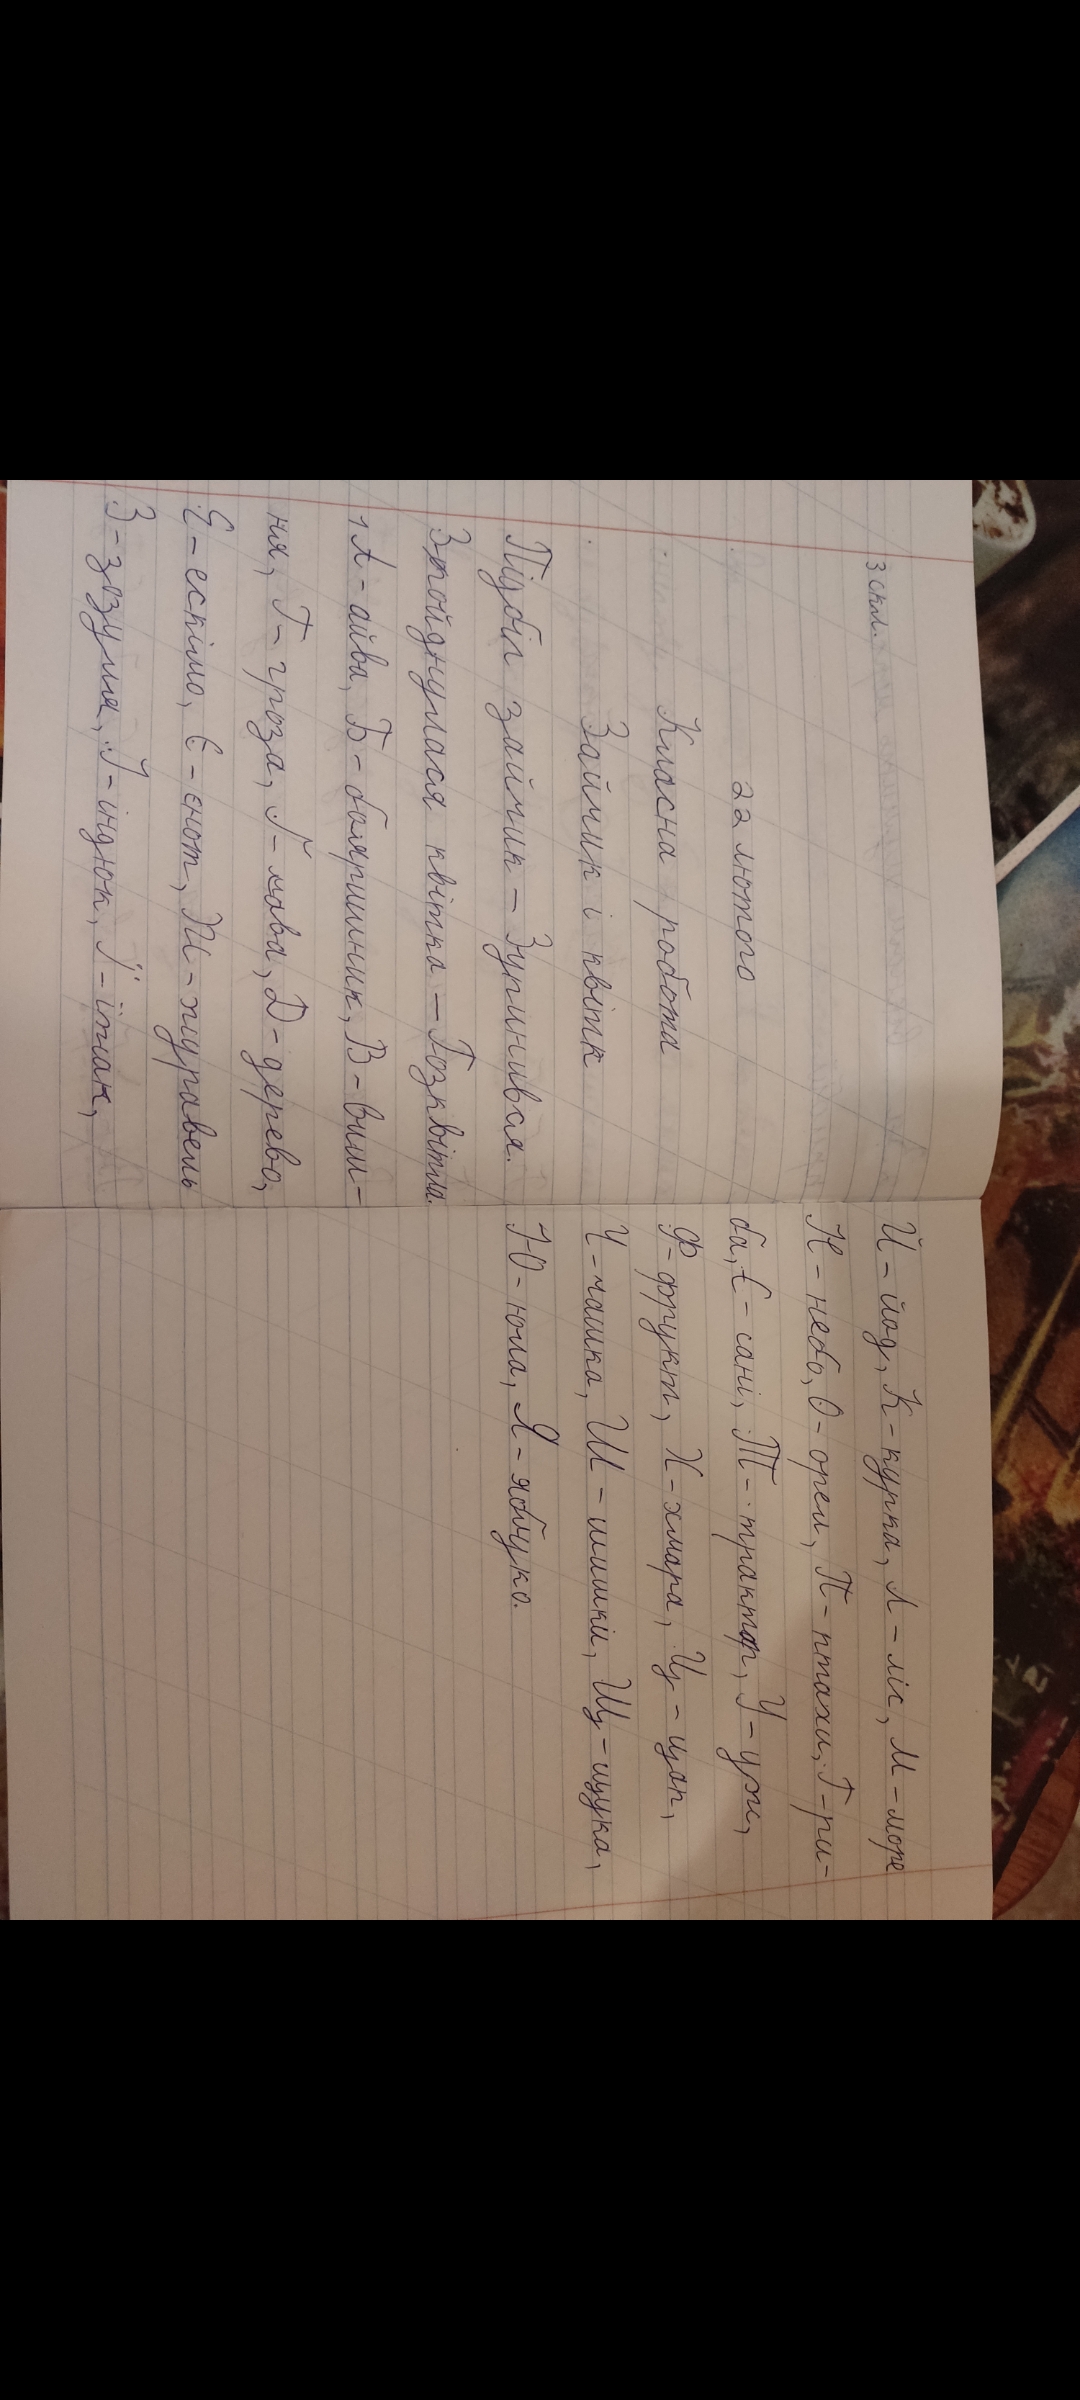 3 скл.
22 лютого
Класна робота
Зайчик і квітк
Підбіг зайчик – Зупинився.
Зтойднулася квітка – Розквітла.
1 А - айва, Б - боляришник, В - виш-
ня, Г - гроза, Ґ - ґава, Д - дерево,
Е - ескімо, Є - єнот, Ж - журавель
З - зозуля, І - індюк, Ї - їжак,
Й - йод, К - курка, Л - ліс, М - море
Н - небо, О - орел, П - птахи, Р - ри-
ба, С - сані, Т - трактор, У - уж,
Ф - фрукт, Х - хмара, Ц - цап,
Ч - чашка, Ш - шишки, Щ - щука,
Ю - юла, Я - яблуко.